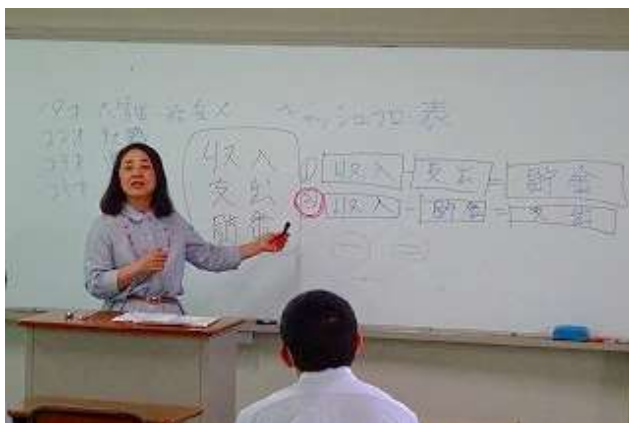 大学生 社会人
キャッシュフロー表
収入
支出
貯金
① 収入 - 支出 = 貯金
② 収入 - 貯金 = 支出